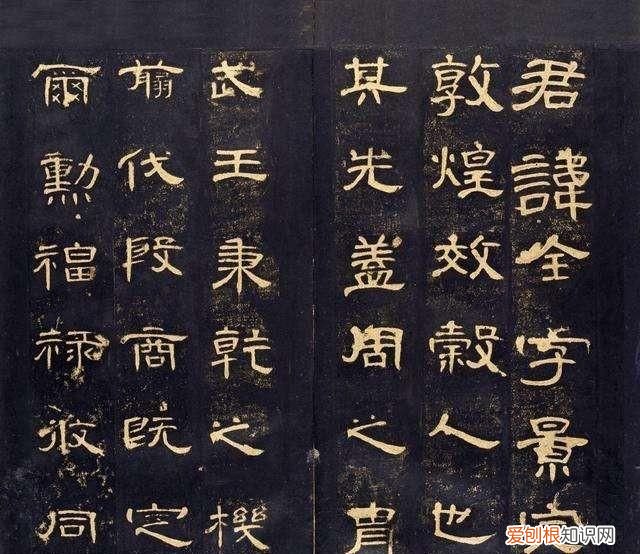 君諱全字景完
敦煌效穀人也
其先蓋周之胄
武王秉乾之機
翦伐殷商既定
爾勳福祿攸同
爱刨根知识网